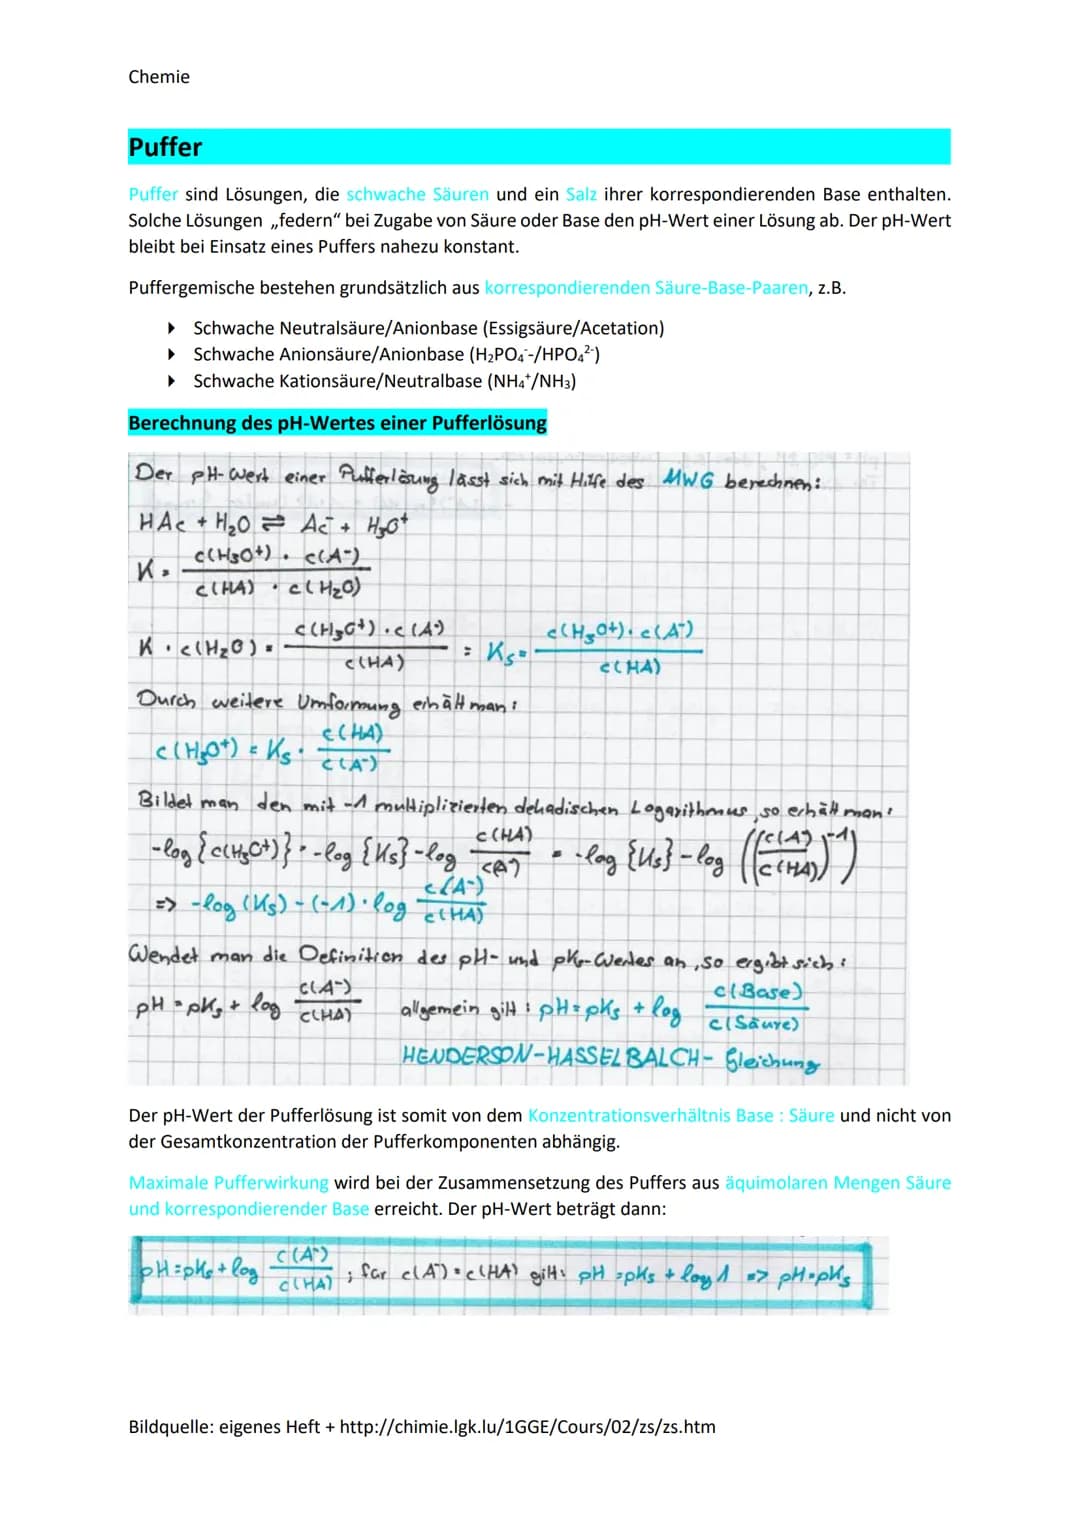 Chemie
Puffer
Puffer sind Lösungen, die schwache Säuren und ein Salz ihrer korrespondierenden Base enthalten.
Solche Lösungen „federn“ bei Zugabe von Säure oder Base den pH-Wert einer Lösung ab. Der pH-Wert
bleibt bei Einsatz eines Puffers nahezu konstant.
Puffergemische bestehen grundsätzlich aus korrespondierenden Säure-Base-Paaren, z.B.
Schwache Neutralsäure/Anionbase (Essigsäure/Acetation)
Schwache Anionsäure/Anionbase (H₂PO₄⁻-/HPO₄²⁻)
Schwache Kationsäure/Neutralbase (NH₄⁺/NH₃)
Berechnung des pH-Wertes einer Pufferlösung
Der pH-Wert einer Pufferlösung lässt sich mit Hilfe des MWG berechnen:
HAc + H₂O ⇌ Ac⁻ + H₃O⁺
K = c(H₃O⁺) · c(A⁻) / c(HA) · c(H₂O)
K · c(H₂O) = c(H₃O⁺) · c(A⁻) / c(HA) = Ks = c(H₃O⁺) · c(A⁻) / c(HA)
Durch weitere Umformung erhält man:
c(H₃O⁺) = Ks · c(HA) / c(A⁻)
Bildet man den mit -1 multiplizierten dekadischen Logarithmus, so erhält man:
-log {c(H₃O⁺)} = -log {Ks} - log c(HA) / c(A⁻) = -log {Ks} - log ((c(A⁻) / c(HA))⁻¹)
=> -log (Ks) - (-1) · log c(A⁻) / c(HA)
Wendet man die Definition des pH- und pKs-Wertes an, so ergibt sich:
pH = pKs + log c(A⁻) / c(HA) allgemein gilt: pH = pKs + log c(Base) / c(Säure)
HENDERSON-HASSELBALCH-Gleichung
Der pH-Wert der Pufferlösung ist somit von dem Konzentrationsverhältnis Base : Säure und nicht von
der Gesamtkonzentration der Pufferkomponenten abhängig.
Maximale Pufferwirkung wird bei der Zusammensetzung des Puffers aus äquimolaren Mengen Säure
und korrespondierender Base erreicht. Der pH-Wert beträgt dann:
pH = pKs + log c(A⁻) / c(HA) ; für c(A⁻) = c(HA) gilt: pH = pKs + log 1 => pH = pKs
Bildquelle: eigenes Heft + http://chimie.lgk.lu/1GGE/Cours/02/zs/zs.htm